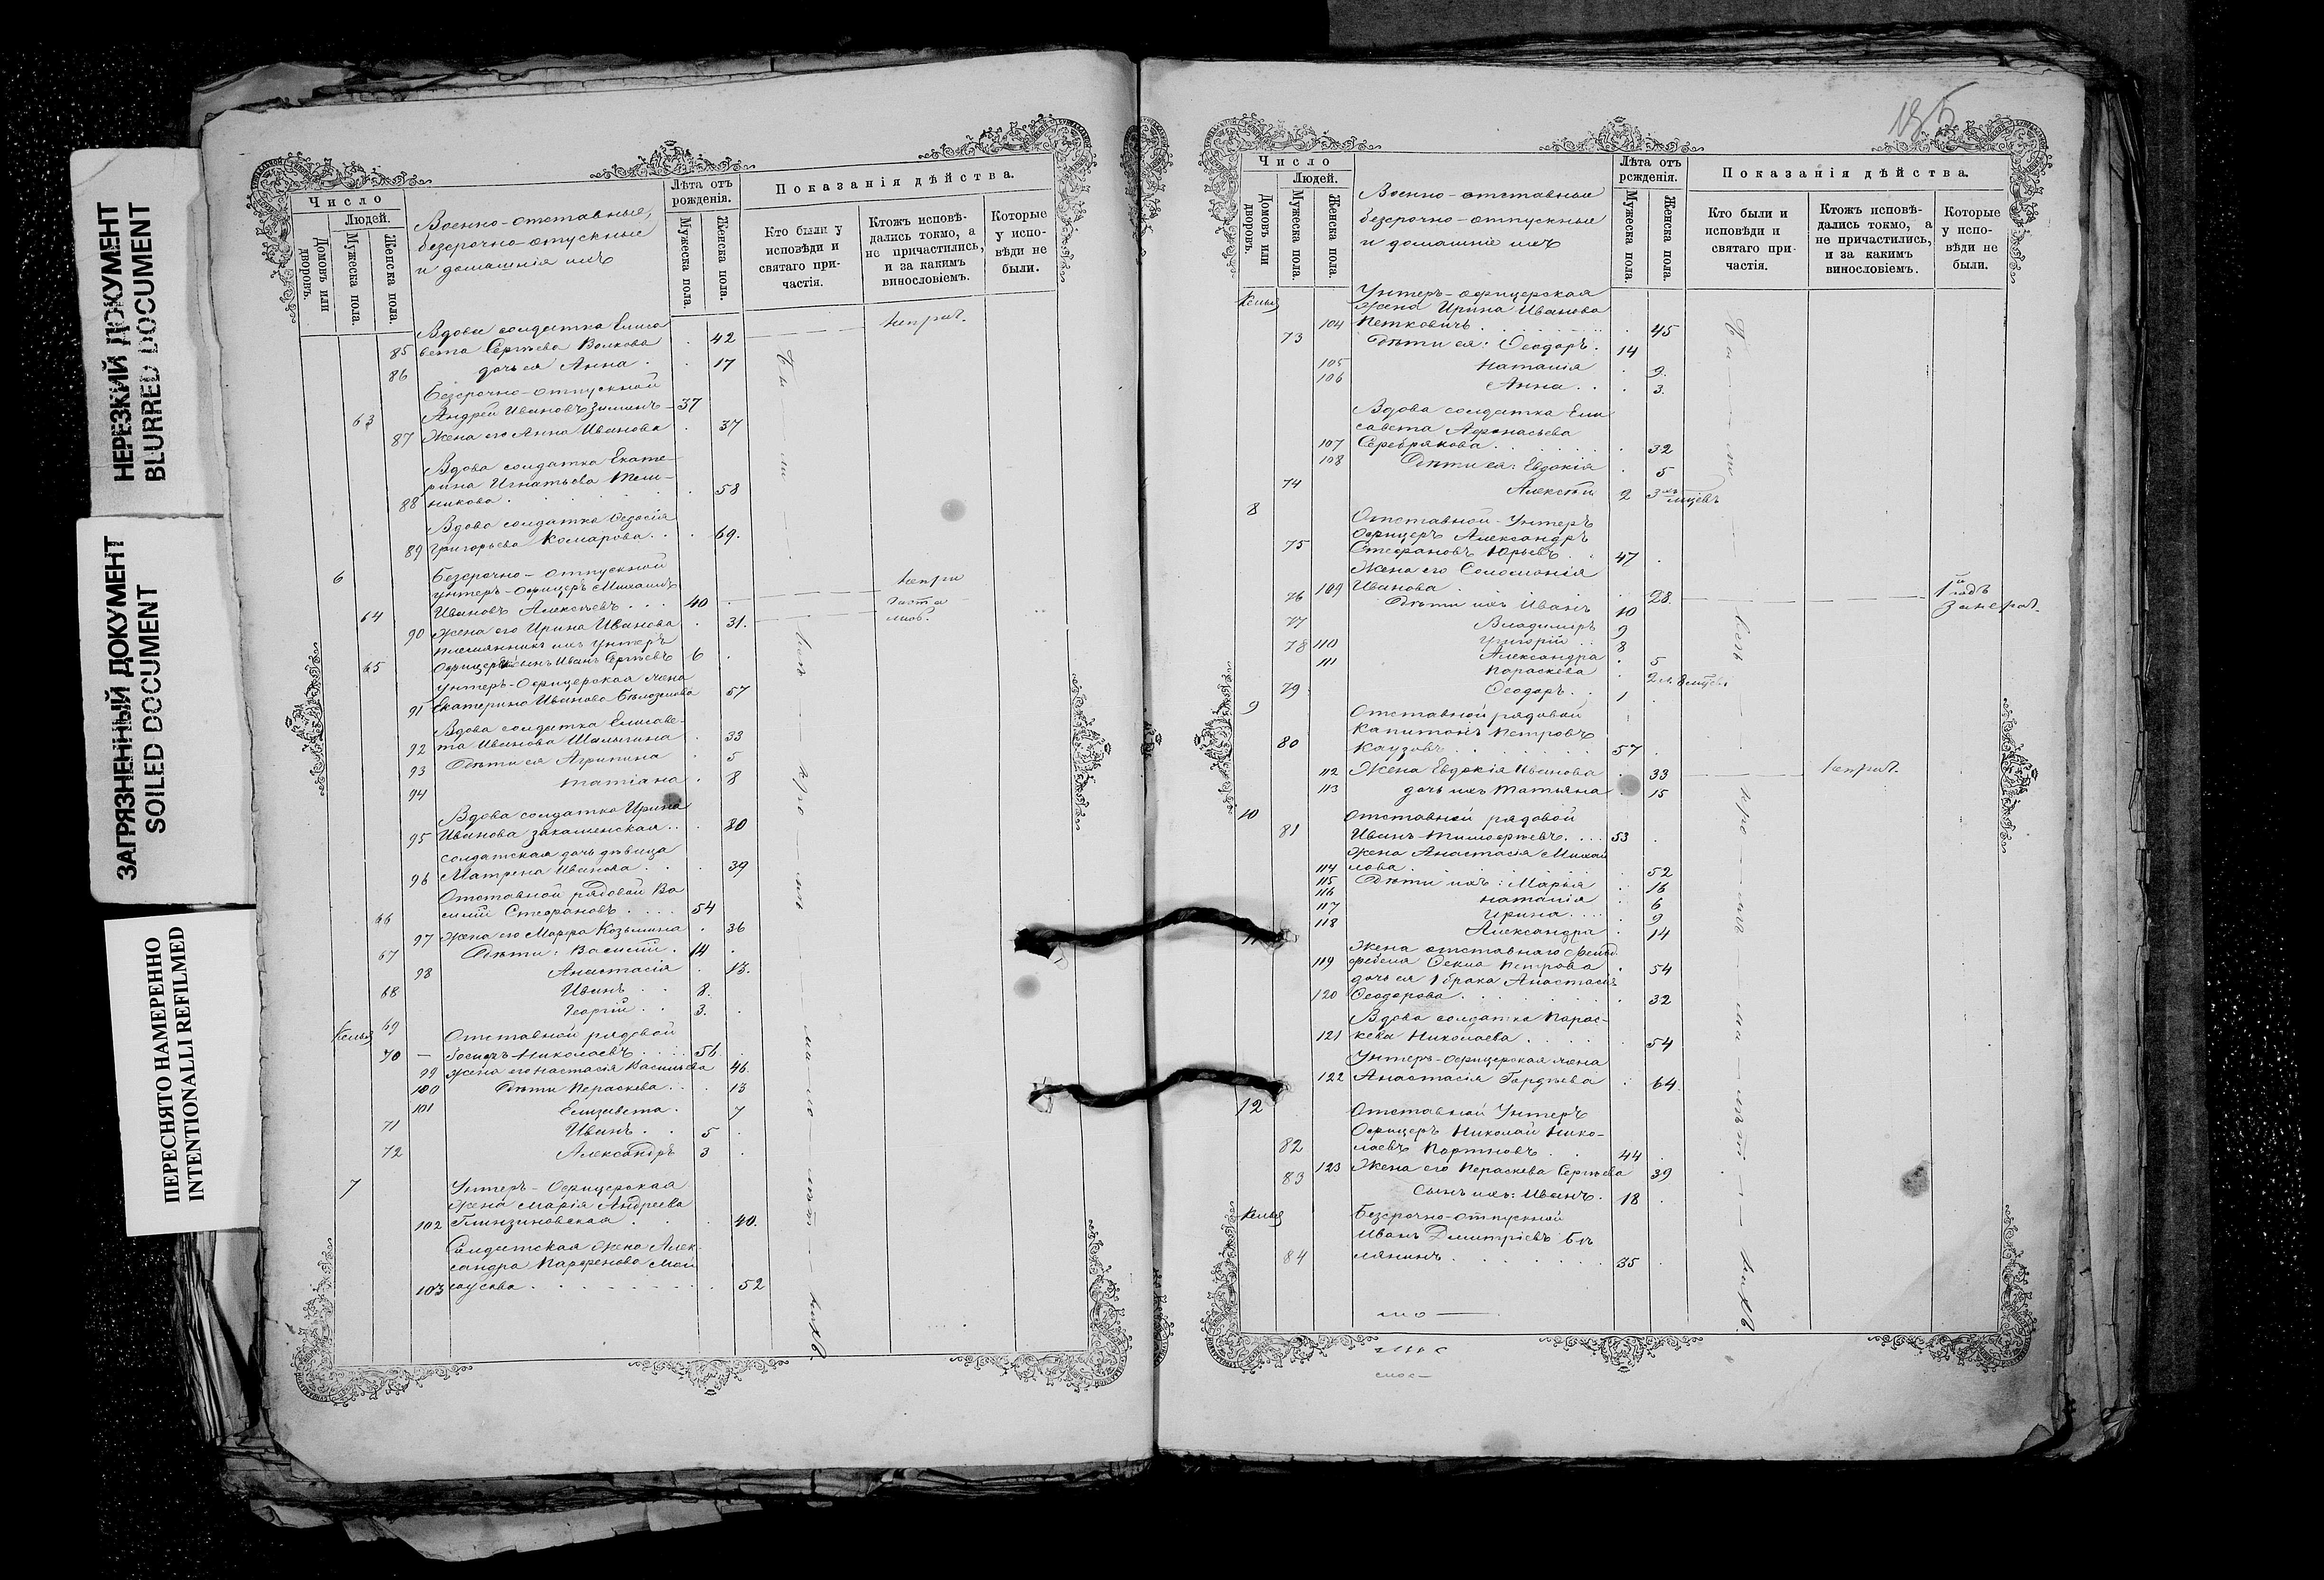 НЕРЕЗКИЙ ДОКУМЕНТ
BLURRED DOCUMENT
ЗАГРЯЗНЕННЫЙ ДОКУМЕНТ
SOILED DOCUMENT
ПЕРЕСНЯТО НАМЕРЕННО
INTENTIONALLI REFILMED
Число
Людей.
Домовъ или дворовъ.
Мужеска пола.
Женска пола.
Военно-отставные,
безсрочно-отпускные
и домашнія ихъ
Лѣта отъ рожденія.
Мужеска пола.
Женска пола.
Показанія дѣйства.
Кто были у исповѣди и святаго причастія.
Ктожъ исповѣдались токмо, а не причастились, и за какимъ винословіемъ.
Которые у исповѣди не были.
Вдова солдатка Елиса
85 вета Сергѣева Волкова 42
86 дочь ея Анна 17
Безсрочно-отпускной
63 Андрей Ивановъ 37
87 Жена его Анна Иванова 37
Вдова солдатка Екате-
рина Игнатьева
88 58
Вдова солдатка Ѳедосія
89 Григорьева Комарова 69.
6 Безсрочно-отпускной
унтеръ-офицеръ Михаилъ
64 Ивановъ Алексѣевъ 40
90 Жена его Ирина Иванова 31.
племянникъ ихъ унтеръ
65 офицерскій сынъ Иванъ Сергѣевъ 6
Унтеръ-офицерская жена
91 Екатерина Иванова 57
Вдова солдатка Елисаве-
92 та Иванова Шалыгина 33
93 Дѣти ея Агрипина 5
94 Татіана 8
Вдова солдатка Ирина
95 Иванова 80
Солдатская дочь дѣвица
96 Матрена Иванова 39
Отставной рядовой Ва
66 силій Стефановъ 54
97 Жена его Марѳа Козьмина 36
67 Дѣти: Василій 14
98 Анастасія 13.
68 Иванъ 8.
69 Георгій 3.
Келья Отставной рядовой
70 Іосифъ Николаевъ 56
99 Жена его Настасія Васильева 46
100 Дѣти Параскева 13
101 Елизавета 7
71 Иванъ 5
72 Александръ 3
7 Унтеръ-офицерская
жена Марія Андреева
102 40.
Солдатская жена Алек-
сандра Парѳенова
103 52
Число
Людей.
Домовъ или дворовъ.
Мужеска пола.
Женска пола.
Военно-отставные
безсрочно-отпускные
и домашніе ихъ
Лѣта отъ рожденія.
Мужеска пола.
Женска пола.
Показанія дѣйства.
Кто были и исповѣди и святаго причастія.
Ктожъ исповѣдались токмо, а не причастились, и за какимъ винословіемъ.
Которые у исповѣди не были.
Келья Унтеръ-офицерская
жена Ирина Иванова
104 Петковичъ 45
73 Дѣти ея: Ѳеодоръ 14
105 Наталія 9.
106 Анна 3.
Вдова солдатка Ели
савета Аѳонасьева
107 Серебрякова 32
108 Дѣти ея: Евдокія 5
74 Алексѣй 2
8 Отставной Унтеръ
офицеръ Александръ
75 Стефановъ Юрьевъ 47
Жена его Соломонія
109 Иванова 28.
76 Дѣти ихъ Иванъ 10
77 Владимиръ 9
78 Григорій 8
110 Александра 5
111 Параскева
79 Ѳеодоръ 1
9 Отставной рядовой
Капитонъ Петровъ
80 57
112 Жена Евдокія Иванова 33
113 дочь ихъ Татьяна 15
10 Отставной рядовой
81 Иванъ Тимоѳеевъ 53
Жена Анастасія Михай
114 лова 52
115 Дѣти ихъ: Марья 16
116 Наталія 6
117 Ирина 9
118 Александра 14
Жена отставнаго фельд
119 фебеля Ѳекла Петрова 54
дочь ея 1 брака Анастасія
120 Ѳеодорова 32
Вдова солдатка Парас-
121 кева Николаева 54
Унтеръ-офицерская жена
122 Анастасія Гордѣева 64.
12 Отставной Унтеръ
офицеръ Николай Нико-
82 лаевъ Портновъ 44
123 Жена его Параскева Сергѣева 39
83 Сынъ ихъ: Иванъ 18
Келья Безсрочно-отпускной
Иванъ Димитріевъ
84 35